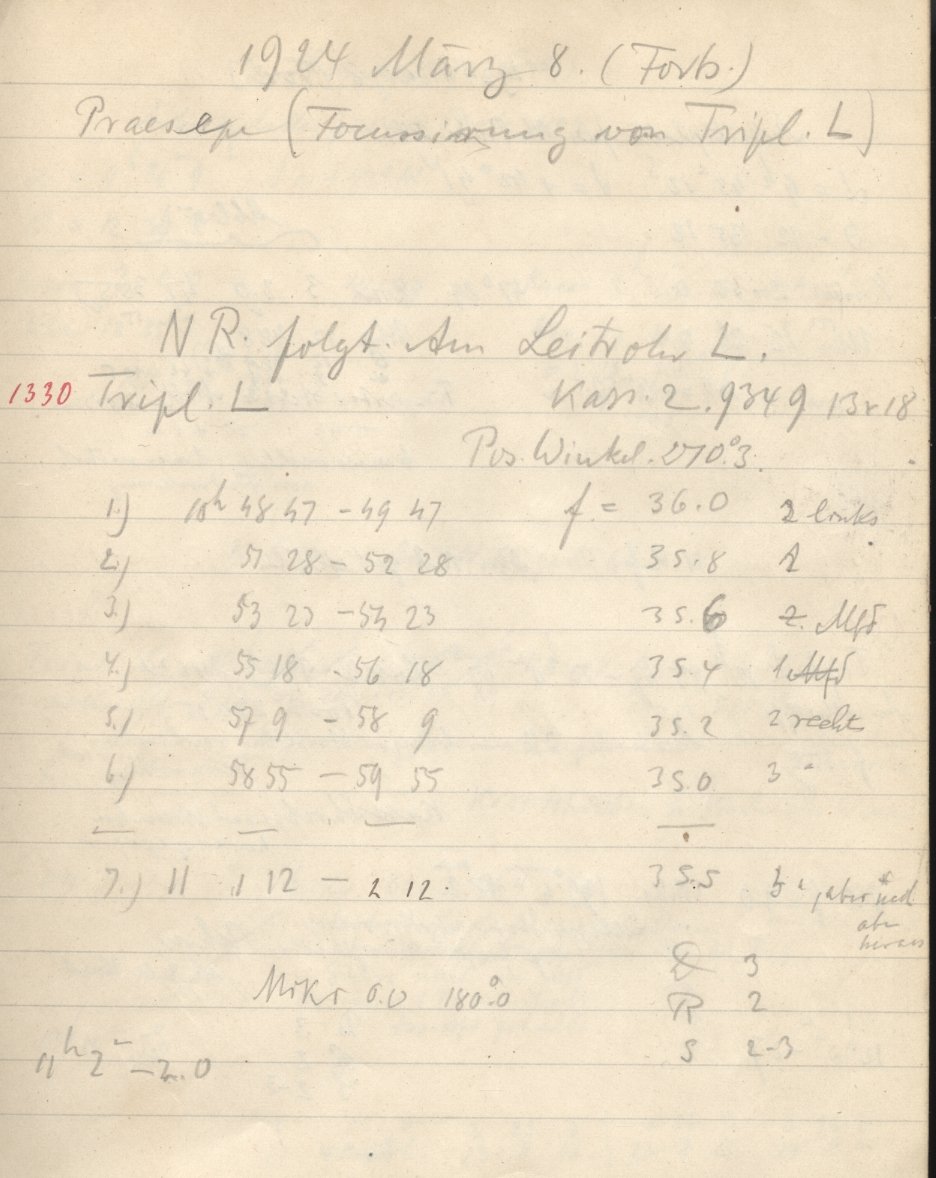 1924 März 8. (Forts.)
Praesepe (Focussierung von Tripl. L)
NR. folgt. Am Leitrohr L.
1330 Tripl. L Kass. 2. 9349 13x18
Pos. Winkel. 270°.3.
1.) 10h 48 47 - 49 47 f. = 36.0 2 links
2.) 51 28 - 52 28 35.8 1
3.) 53 23 - 54 23 35.6 z. Mfd
4.) 55 18 - 56 18 35.4 1 Mfd
5.) 57 9 - 58 9 35.2 2 rechts
6.) 58 55 - 59 55 35.0 3 "
7.) 11 1 12 - 2 12. 35.5 5 " , aber
oben
heraus
D 3
Mikr 0.0 180°.0 R 2
S 2-3
11h 2m - 2.0